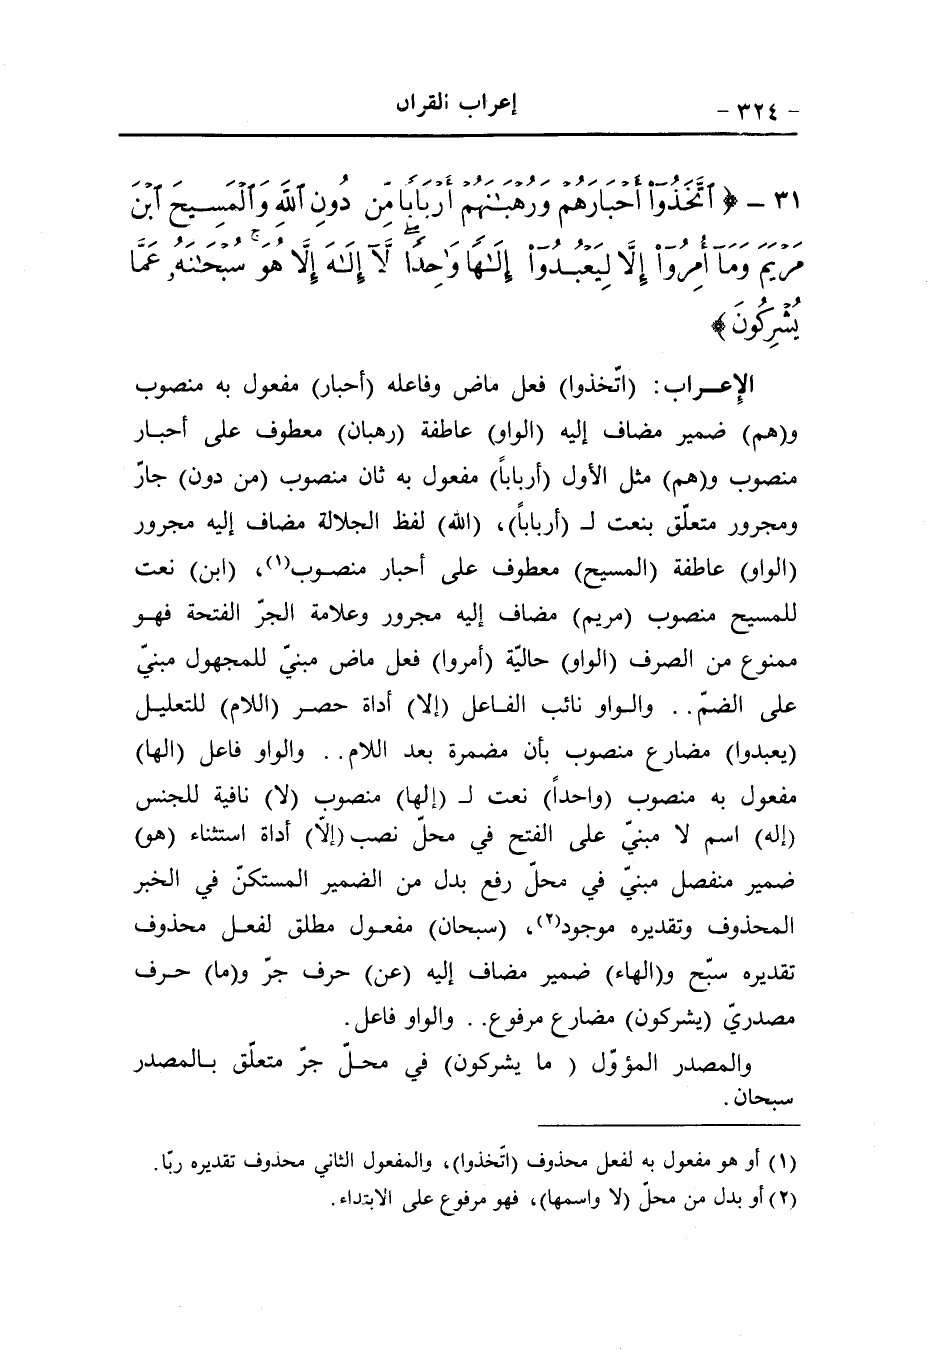 - ٣٢٤ - إعراب القرآن
٣١ - ﴿ ٱتَّخَذُوٓا۟ أَحْبَارَهُمْ وَرُهْبَـٰنَهُمْ أَرْبَابًا مِّن دُونِ ٱللَّهِ وَٱلْمَسِيحَ ٱبْنَ
مَرْيَمَ وَمَآ أُمِرُوٓا۟ إِلَّا لِيَعْبُدُوٓا۟ إِلَـٰهًا وَٰحِدًا ۖ لَّآ إِلَـٰهَ إِلَّا هُوَ ۚ سُبْحَـٰنَهُۥ عَمَّا
يُشْرِكُونَ ﴾
الإعـراب: (اتّخذوا) فعل ماض وفاعله (أحبار) مفعول به منصوب
و(هم) ضمير مضاف إليه (الواو) عاطفة (رهبان) معطوف على أحبـار
منصوب و(هم) مثل الأول (أرباباً) مفعول به ثان منصوب (من دون) جارّ
ومجرور متعلّق بنعت لـ (أرباباً)، (الله) لفظ الجلالة مضاف إليه مجرور
(الواو) عاطفة (المسيح) معطوف على أحبار منصـوب(١)، (ابن) نعت
للمسيح منصوب (مريم) مضاف إليه مجرور وعلامة الجرّ الفتحة فهـو
ممنوع من الصرف (الواو) حاليّة (أمروا) فعل ماض مبنيّ للمجهول مبنيّ
على الضمّ.. والـواو نائب الفـاعل (إلا) أداة حصـر (اللام) للتعليـل
(يعبدوا) مضارع منصوب بأن مضمرة بعد اللام.. والواو فاعل (الها)
مفعول به منصوب (واحداً) نعت لـ (إلها) منصوب (لا) نافية للجنس
(إله) اسم لا مبنيّ على الفتح في محلّ نصب (إلاّ) أداة استثناء (هو)
ضمير منفصل مبنيّ في محلّ رفع بدل من الضمير المستكنّ في الخبر
المحذوف وتقديره موجود(٢)، (سبحان) مفعـول مطلق لفعـل محذوف
تقديره سبّح و(الهاء) ضمير مضاف إليه (عن) حرف جرّ و(ما) حـرف
مصدريّ (يشركون) مضارع مرفوع.. والواو فاعل.
والمصدر المؤوّل ( ما يشركون) في محـلّ جرّ متعلّق بـالمصدر
سبحان.
(١) أو هو مفعول به لفعل محذوف (اتّخذوا)، والمفعول الثاني محذوف تقديره ربّا.
(٢) أو بدل من محلّ (لا واسمها)، فهو مرفوع على الابتداء.